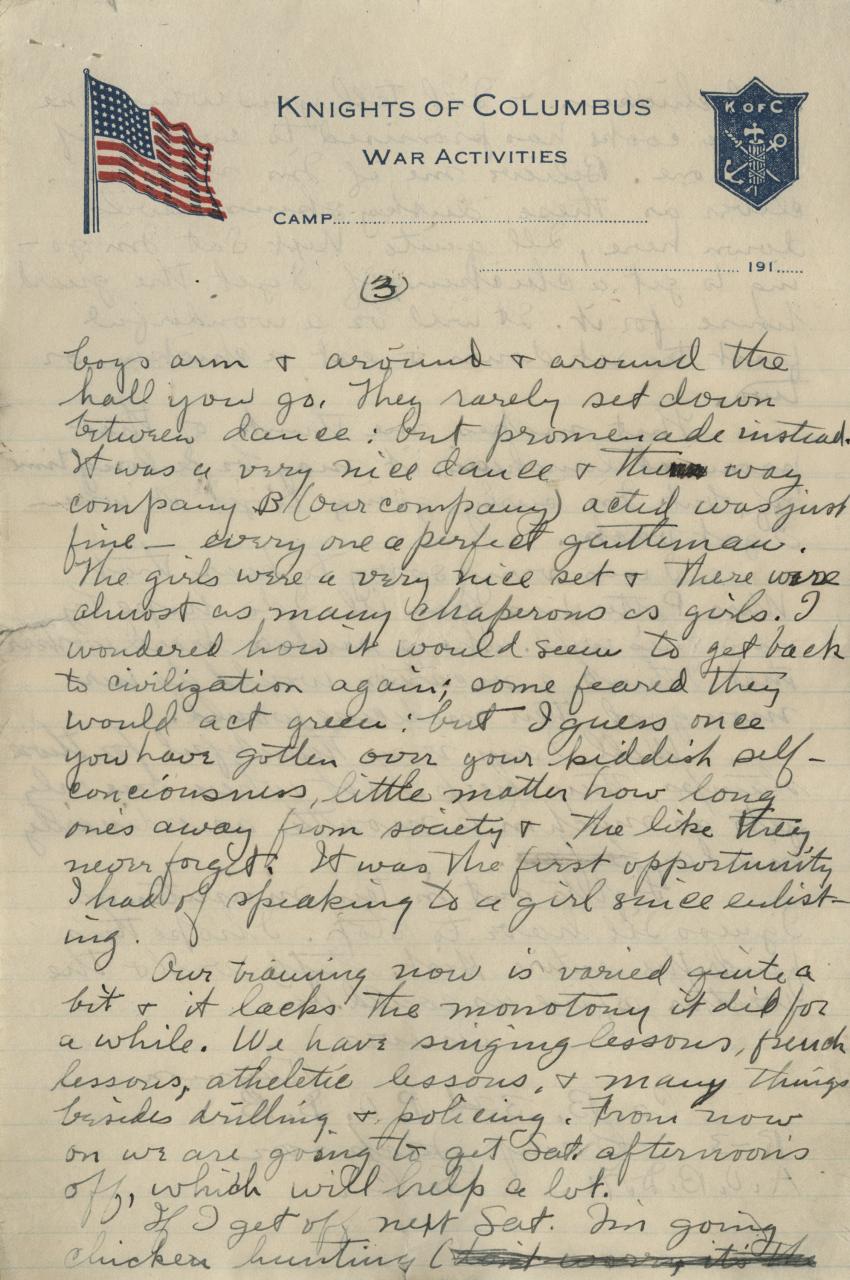 K OF C
KNIGHTS OF COLUMBUS
WAR ACTIVITIES
CAMP
191
(3)
boys arm & around & around the
hall you go. They rarely set down
between dance : but promenade instead.
It was a very nice dance & the way
company B (our company) acted was just
fine — every one a perfect gentleman.
The girls were a very nice set & there were
almost as many chaperons as girls. I
wondered how it would seem to get back
to civilization again; some feared they
would act green : but I guess once
you have gotten over your kiddish self-
conciousness, little matter how long
one's away from society & the like they
never forget. It was the first opportunity
I had of speaking to a girl since enlist-
ing.
Our training now is varied quite a
bit & it lacks the monotony it did for
a while. We have singing lessons, french
lessons, atheletic lessons, & many things
besides drilling & policing. From now
on we are going to get Sat. afternoons
off, which will help a lot.
If I get off next Sat. I'm going
chicken hunting (don't worry, it's the